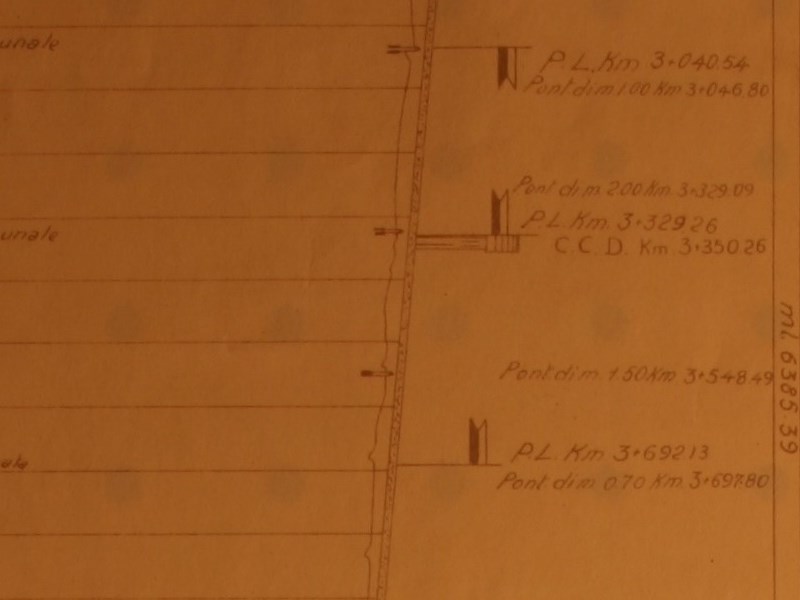 unale
P.L. Km 3+040.54
Pont. dim 1.00 Km 3+046.80
Pont dim. 2.00 Km. 3+329.09
unale
P.L. Km. 3+329 26
C. C. D. Km. 3+350 26
Pont. dim. 1.50 Km 3+548.49
ale
P.L. Km 3+692 13
Pont dim 0.70 Km. 3+697.80
ml 6385 39